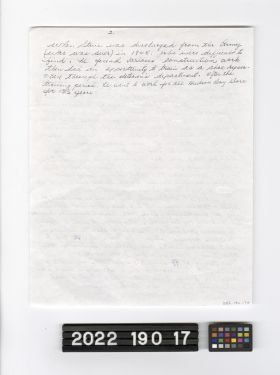 2
After Steve was discharged from the Army
(WW2 was over) in 1945. Jobs were difficult to
find; he found various construction work
then had an opportunity to train as a shoe repair-
man through the veteran's department. After the
training period he went to work for the Hudson Bay Store
for 25 years
2022 190 17